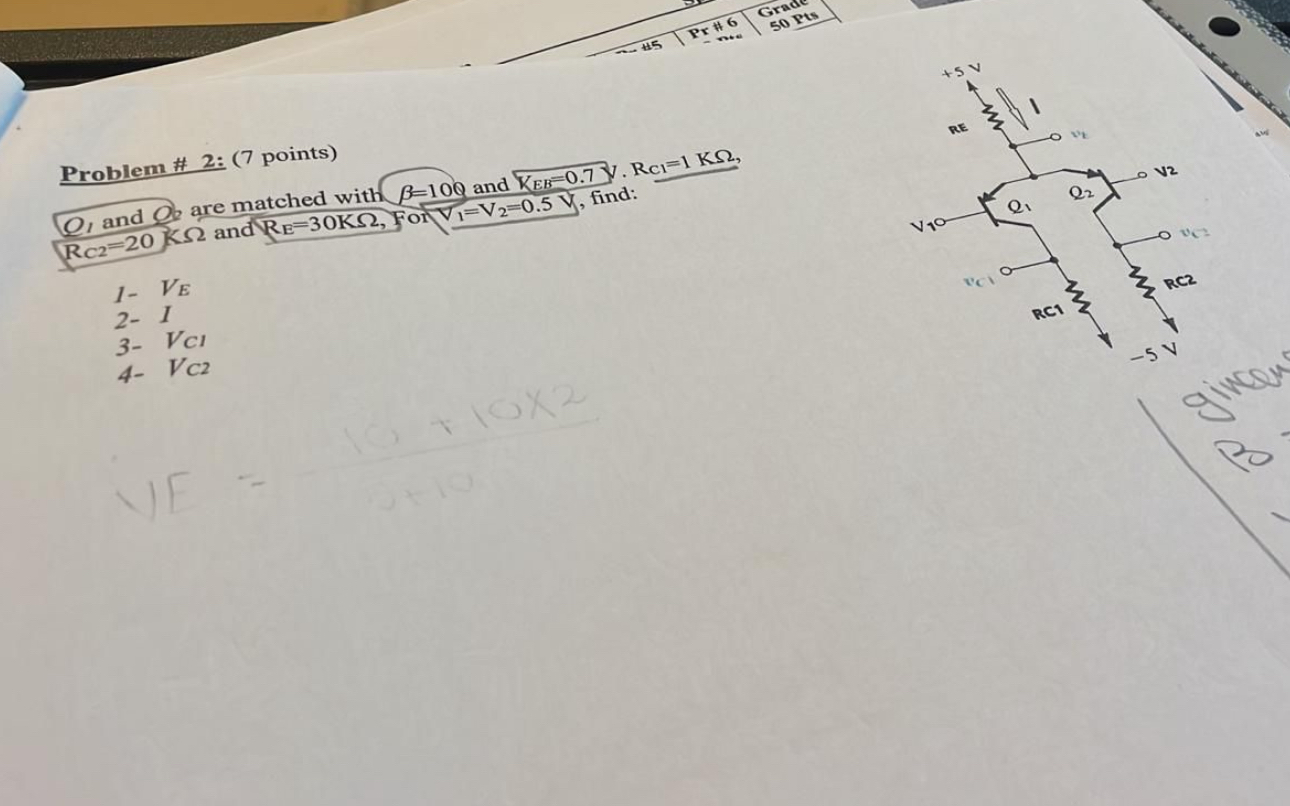 Pr # 6
Grade
#5
50 Pts
Problem # 2: (7 points)
Q1 and Q2 are matched with β=100 and VEB=0.7 V. RC1=1 KΩ,
RC2=20 KΩ and RE=30KΩ, For V1=V2=0.5 V, find:
1- VE
2- I
3- VC1
4- VC2
+5 V
I
RE
VE
V2
Q2
Q1
V1
VC2
VC1
RC2
RC1
-5 V
VE = 10 + 10X2
B